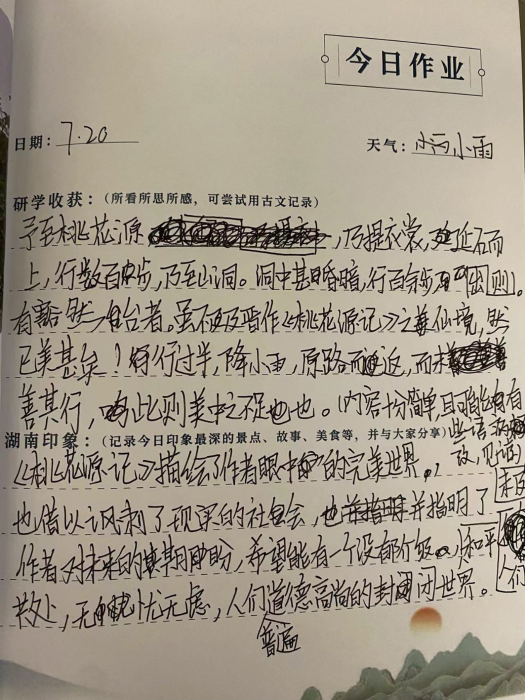 今日作业
日期：7.20 天气：小雨
研学收获：（所看所思所感，可尝试用古文记录）
予至桃花源，乃提衣裳，延石而
上，行数百步，乃至山洞。洞中甚昏暗，行百余步，则
有豁然者，虽不及晋作《桃花源记》之美仙境，然
已美甚矣！行过半，降小雨，原路而返，而未
善其行，此则美中之不足也。（内容十分简单，且可能会有
些语病
故，见谅）
湖南印象：（记录今日印象最深的景点、故事、美食等，并与大家分享）
《桃花源记》描绘了作者眼中的完美世界，
也借以讽刺了现实的社会，也并指明了
作者对未来的期盼，希望能有一个没有，和平
共处，无忧无虑，人们道德高尚的封闭世界。
普遍